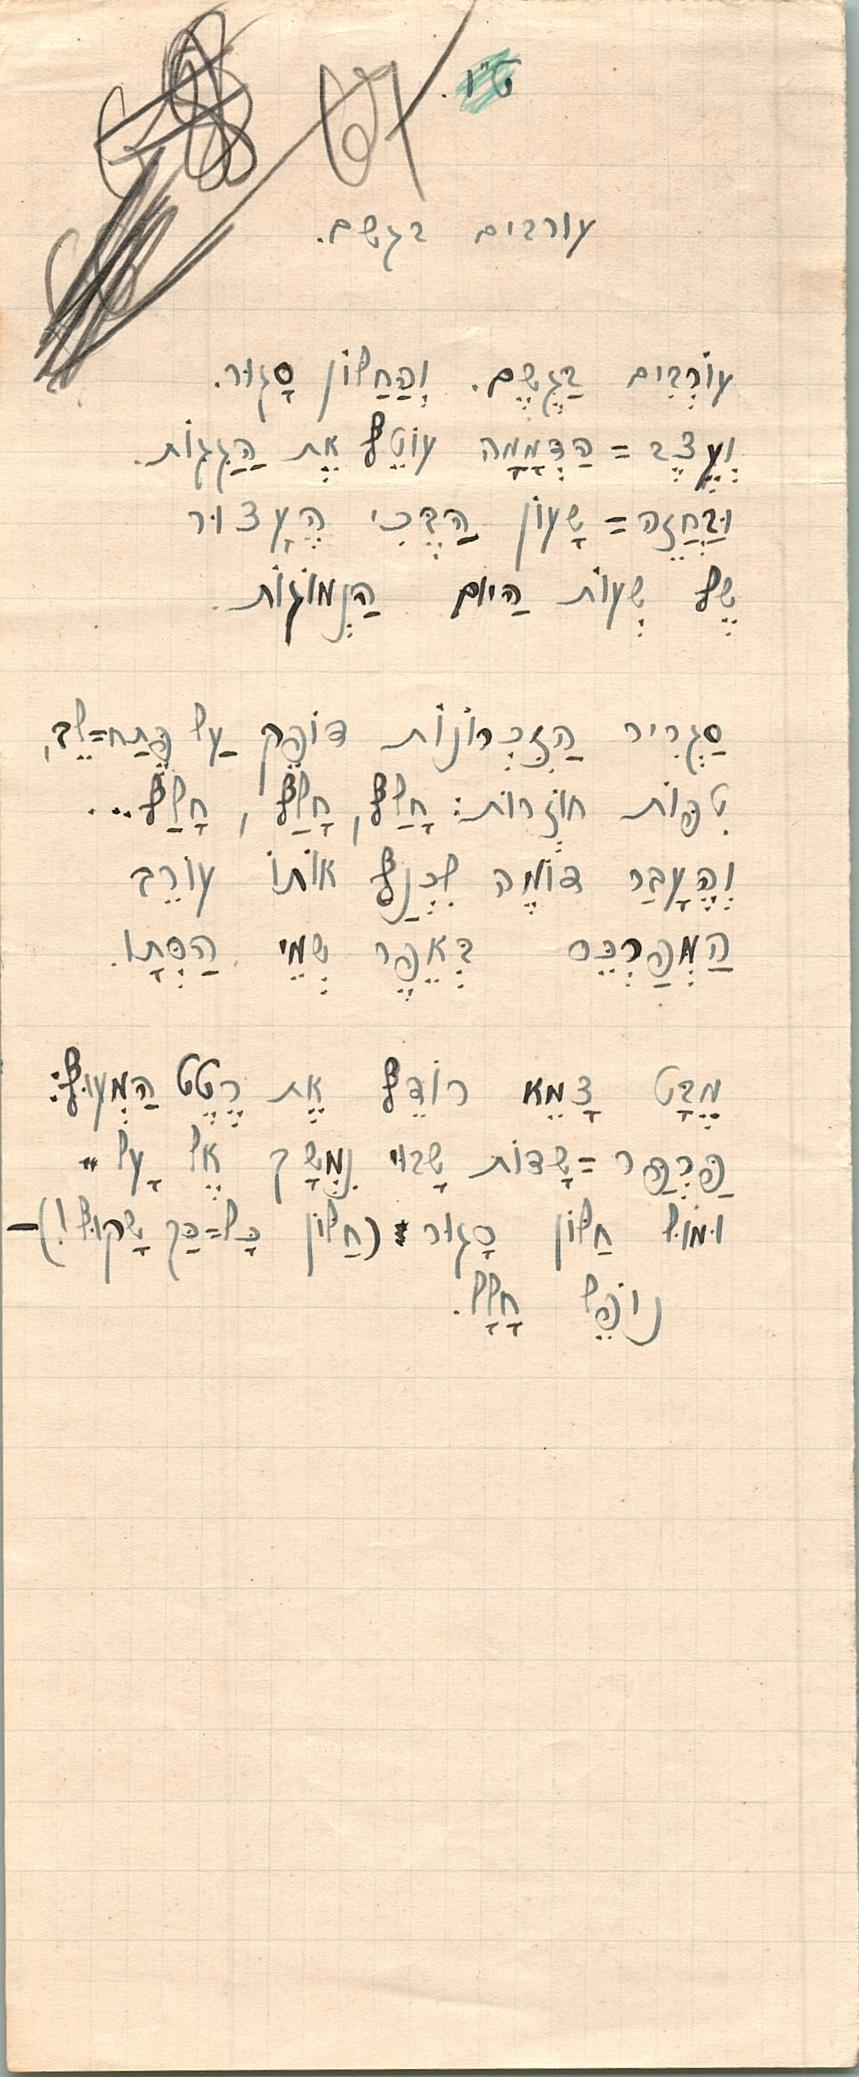 ט"ו.
עורבים בגשם.
עוֹרְבִים בַּגֶּשֶׁם. וְהַחַלּוֹן סָגוּר.
וְעֶצֶב = הַדְּמָמָה עוֹטֵף אֶת הַגַּגּוֹת.
וּבֶחָזֶה = שָׁעוֹן הַבֶּכִי הֶעָצוּר
שֶׁל שְׁעוֹת הַיּוֹם הַנְּמוֹגוֹת.
סַגְרִיר הַזִּכְרוֹנוֹת דּוֹפֵק עַל פֶּתַח=לֵב,
טִפּוֹת חוֹזְרוֹת: חָלַף, חָלַף, חָלַף...
וְהֶעָבָר דּוֹמֶה לִכְנַף אוֹתוֹ עוֹרֵב
הַמְפַרְכֵּס בְּאֵפֶר שְׁמֵי הַסְּתָו.
מֶבָּט צָמֵא רוֹדֵף אֶת רֶטֶט הַמָּעוּף:
פַּרְפַּר = שָׂדוֹת שָׁבוּי נִמְשָׁךְ אֶל עָל -
וּמוּל חַלּוֹן סָגוּר (חַלּוֹן כָּל=כַּךְ שָׁקוּף!) -
נוֹפֵל חָלָל.